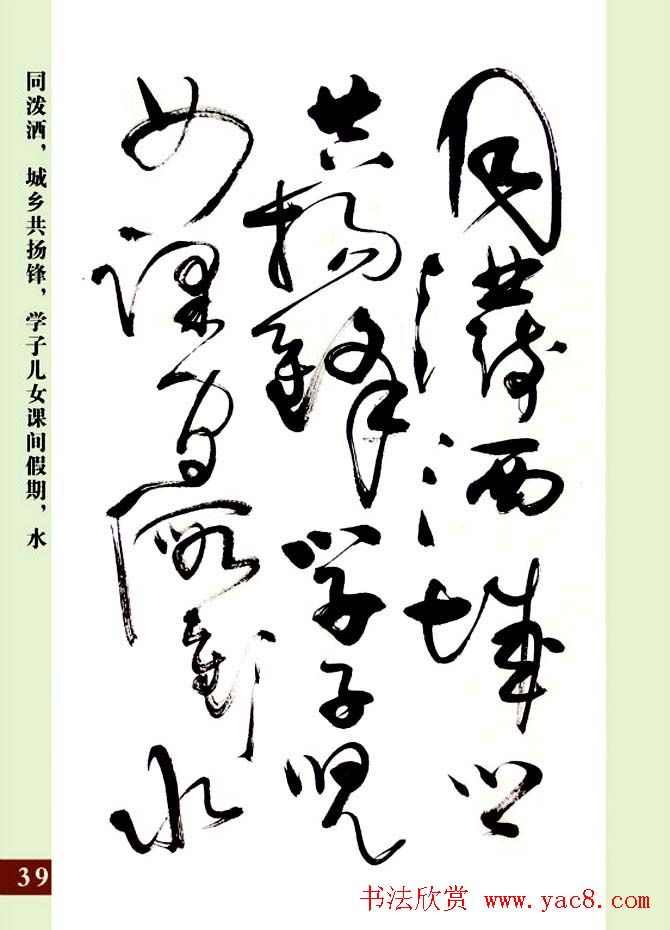 同潑洒城乡
共揚鋒学子児
女课间假期水
同泼洒，城乡共扬锋，学子儿女课间假期，水
39
书法欣赏 www.yac8.com